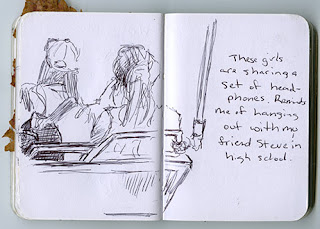 These girls
are sharing a
set of head-
phones. Reminds
me of hanging
out with my
friend Steve in
high school.